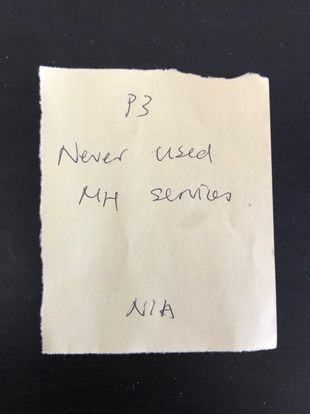 P3
Never used
MH services.
N/A